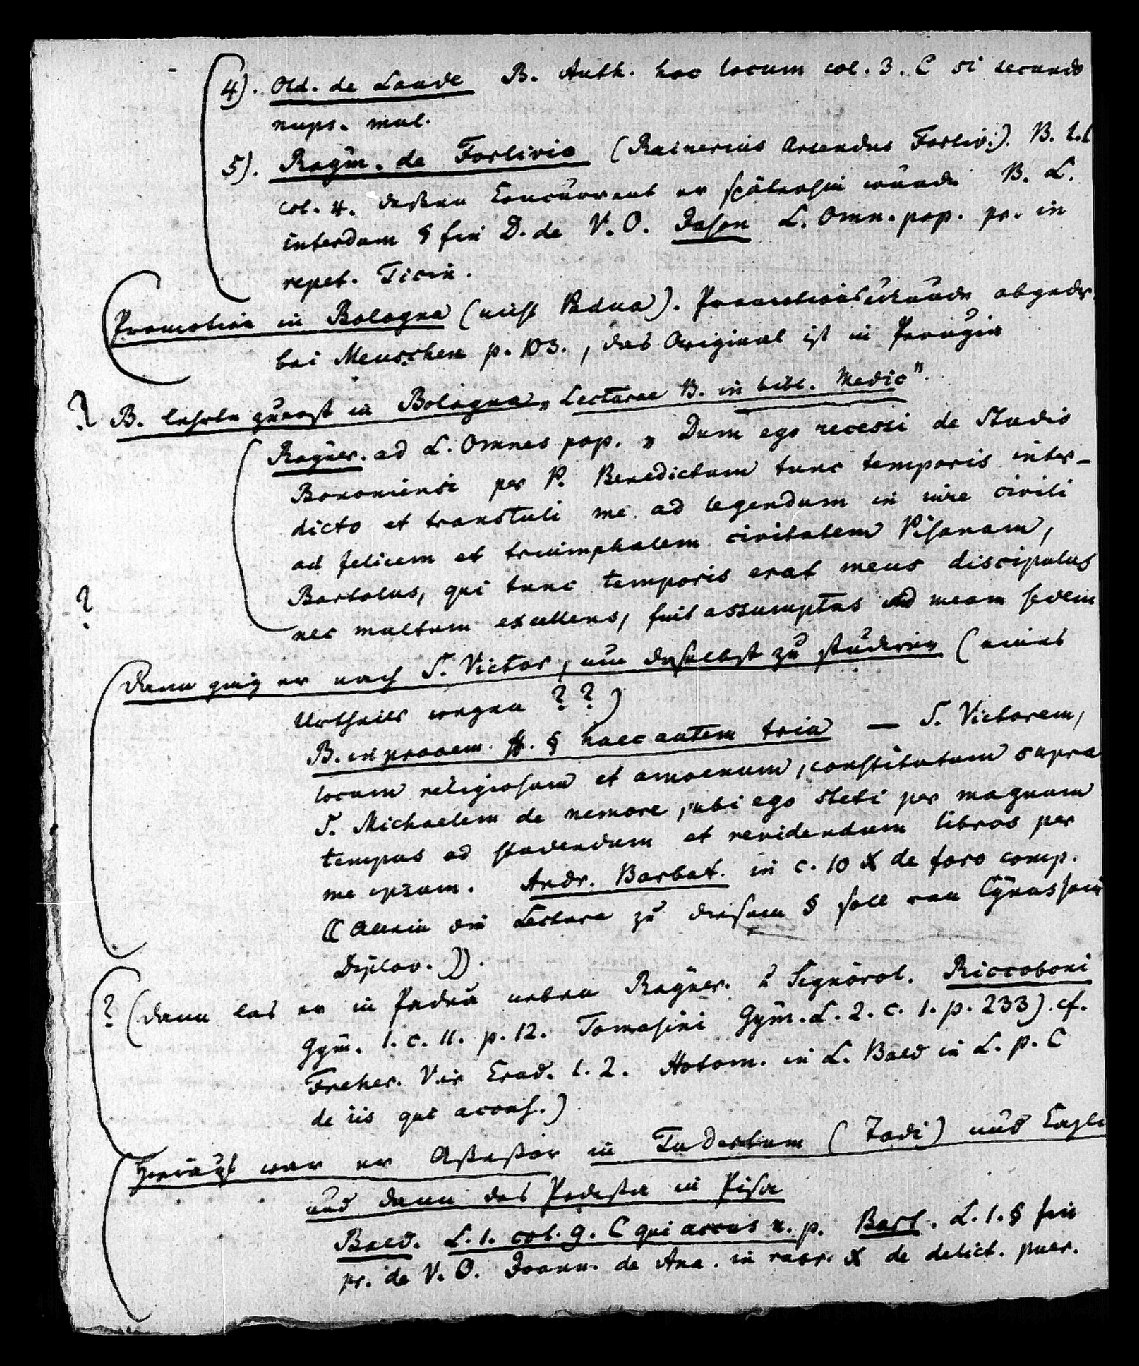 4). Old. de Laude B. Auth. hoc locum col. 3. C si secundo
nups. mul.
5). Rayn. de Forlivio (Rainerius Arsendus Forliv.). B. l. c
col. 4. dessen Concurrent er späterhin wurde B. L.
interdum § fin D. de V. O. Jason L. Omn. pop. pr. in
repet. Ticin.
Promotion in Bologna (nicht Padua). Promotionsurkunde abgedr.
bei Meuschen p. 103., das Original ist in Perugia
? B. lehrte zuerst in Bologna „Lecturae B. in bibl. Medic".
Rayner. ad L. Omnes pop. „ Dum ego recessi de Studio
Bononiensi per P. Benedictum tunc temporis inter-
dicto et transtuli me ad legendum in iure civili
ad felicem et triumphalem civitatem Pisanam,
Bartolus, qui tunc temporis erat meus discipulus
? nec multum excellens, fuit assumptus ad meam sedem
Dann ging er nach S. Victor, um daselbst zu studiren (eines
Urtheils wegen ??)
B. in prooem. ff. § haec autem tria — S. Victorem,
locum religiosum et amoenum, constitutum supra
S. Michaelem de nemore, ubi ego steti per magnum
tempus ad studendum et revidendum libros per
me ipsum. Andr. Barbat. in c. 10 X de foro comp.
(( Allein die Lectura zu diesem § soll von
Diplov. )).
? (Dann las er in Padua neben Rayner. u Signorol. Riccoboni
Gym. l. c. 11. p. 12. Tomasini Gym. L. 2. c. 1. p. 233) cf.
Freher. Vir Erud. l. 2. Hotom. in L. Bald in L. p. C
de iis qui accus.)
Hierauf war er Assessor in Tudertum (Todi) und Cagli
und dann des Podesta in Pisa
Bald. L. 1. col. 9. C qui accus n. p. Bart. L. 1. § fin
pr. de V. O. Joann. de Ana. in rubr. X de delict. puer.